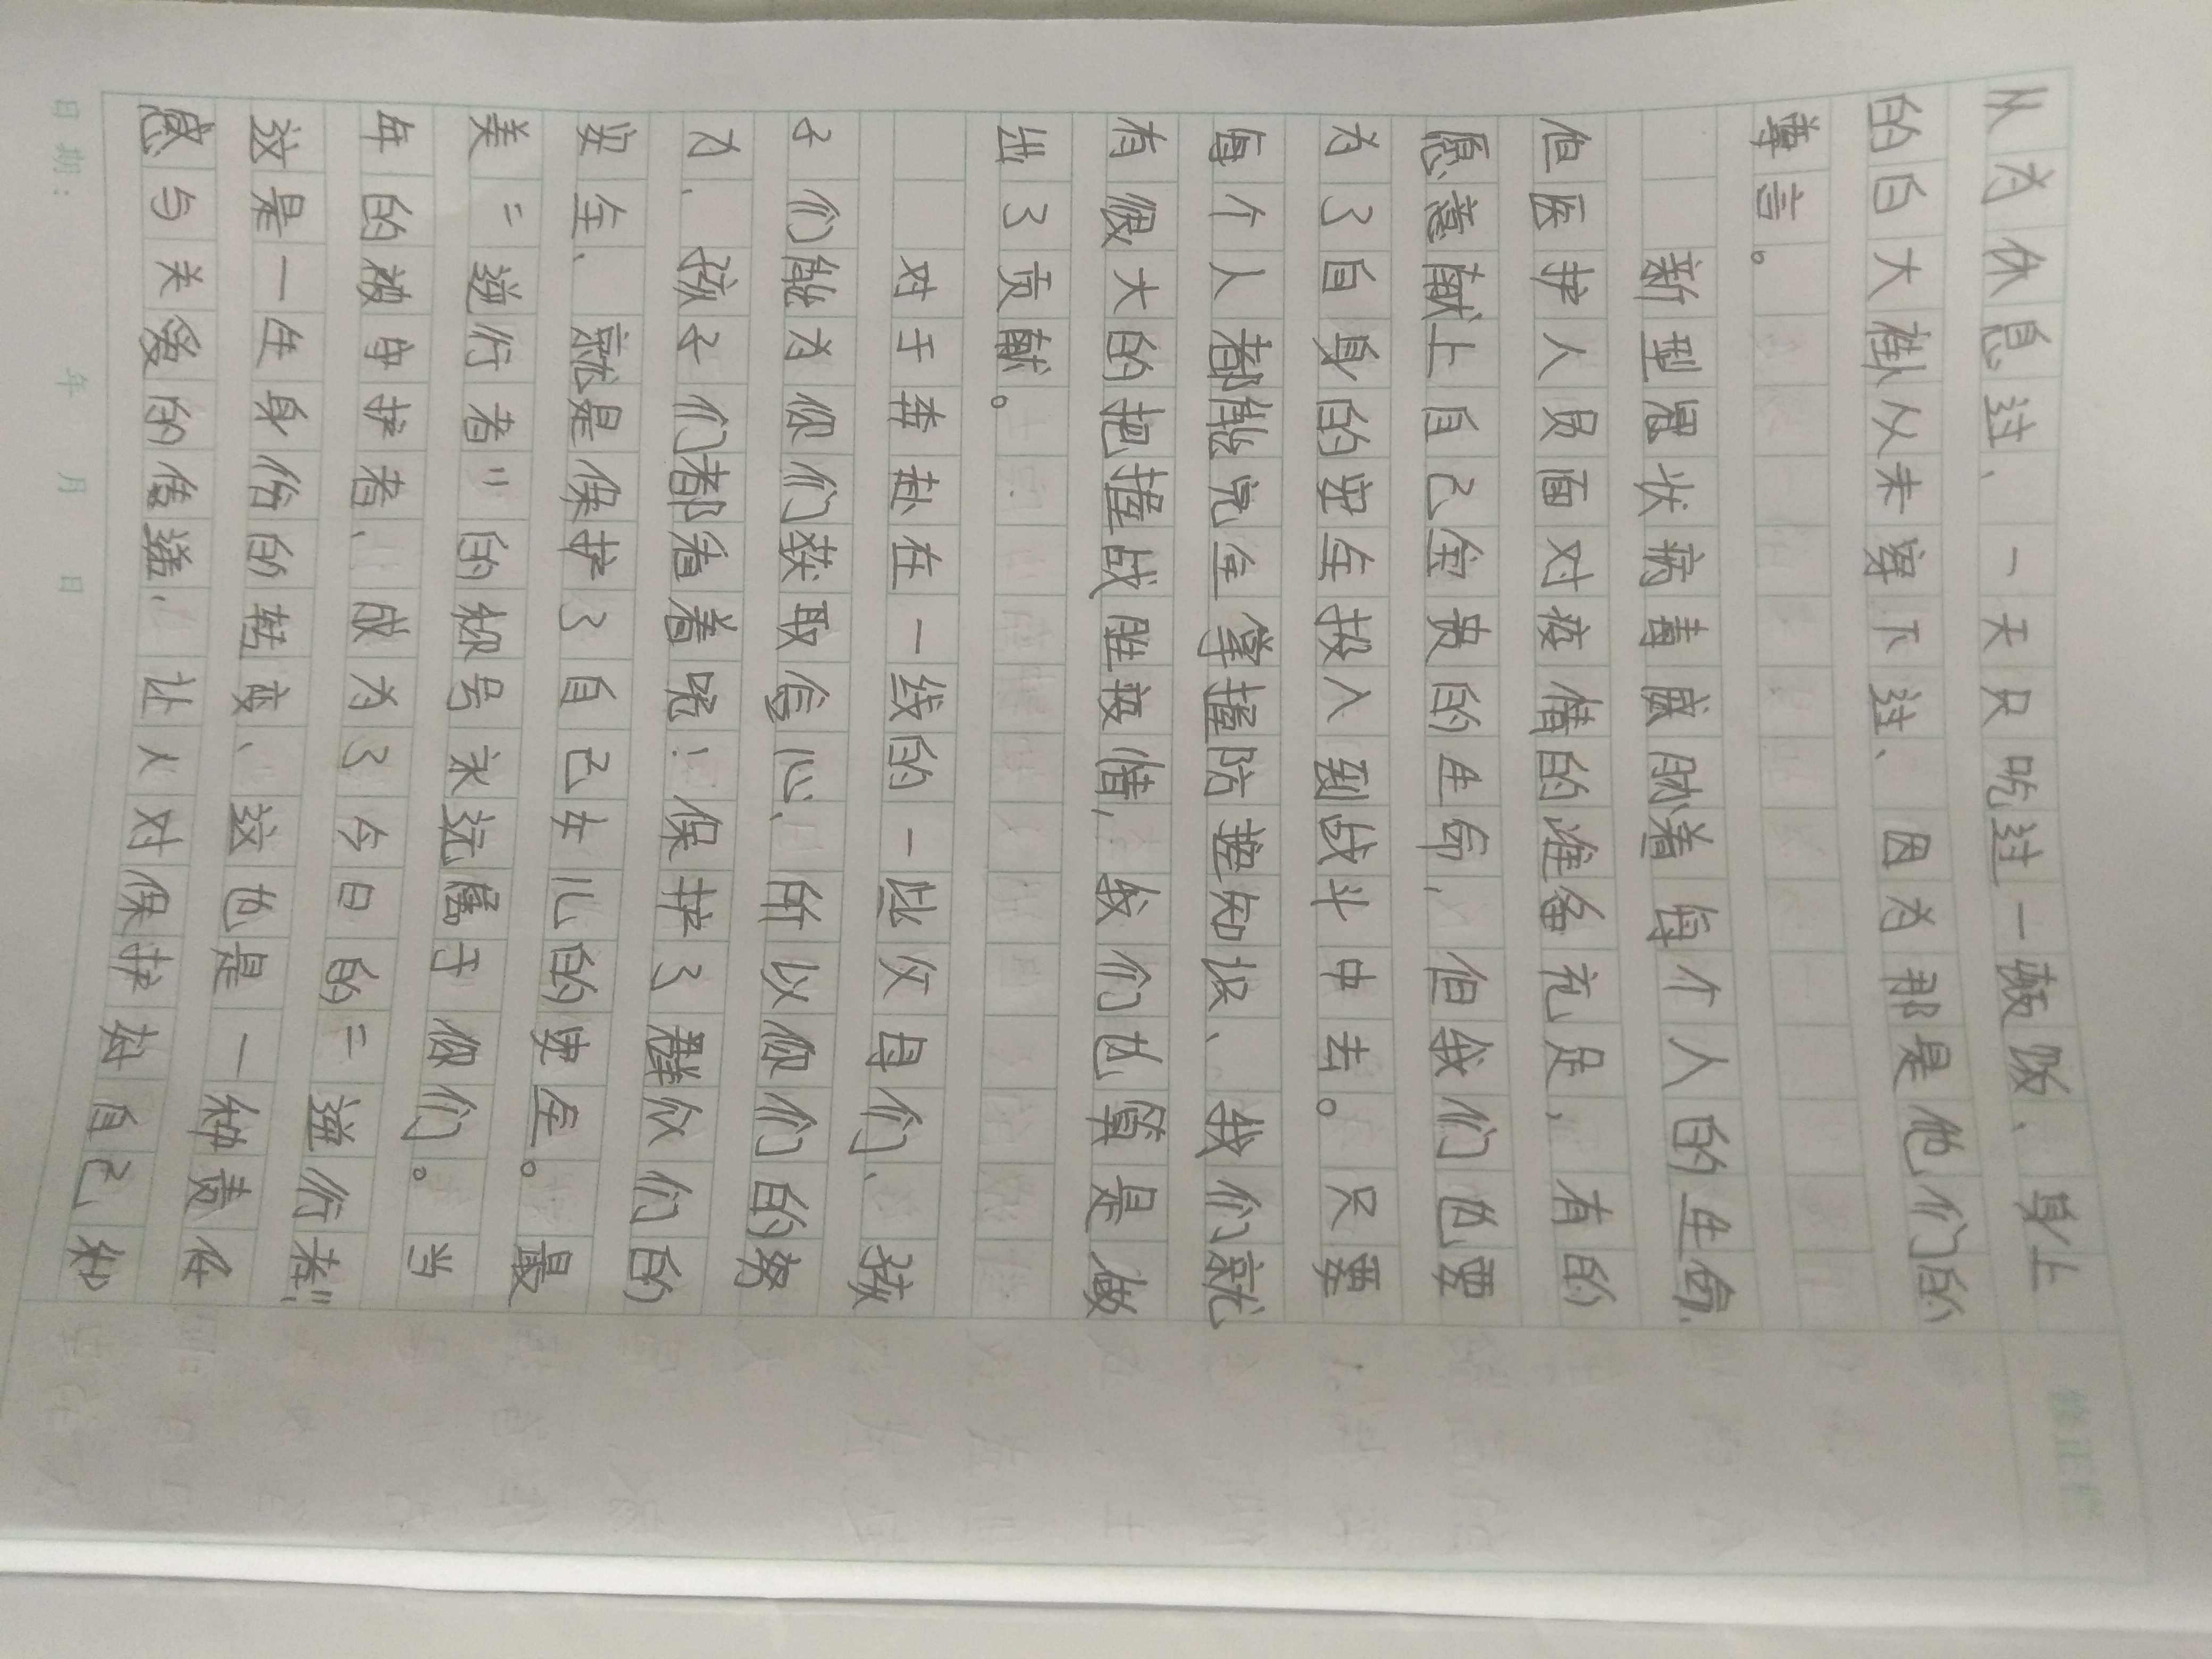 从为休息过、一天只吃过一顿饭、身上
的白大褂从未穿下过、因为那是他们的
尊言。
新型冠状病毒威胁着每个人的生命
但医护人员面对疫情的准备充足，有的
愿意献上自己金贵的生命，但我们也要
为了自身的安全投入到战斗中去。只要
每个人都能完全掌握防控知识、我们就
有很大的把握战胜疫情，我们也算是做
出了贡献。
对于奔赴在一线的一些父母们、孩
子们能为你们获取信心、所以你们的努
力、孩子们都看着呢！保护了群众们的
安全、就是保护了自己女儿的安全。最
美"逆行者"的称号永远属于你们。当
年的被守护者、成为了今日的"逆行者"
这是一生身份的转变、这也是一种责任
感与关爱的传递、让人对保护好自己和
日期： 年 月 日
修正栏